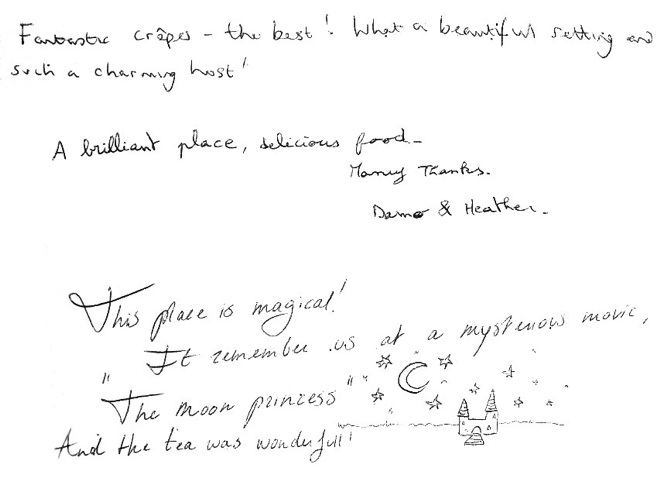 Fantastic crêpes - the best! What a beautiful setting and
such a charming host!
A brilliant place, delicious food -
Many Thanks.
Damo & Heather.
This place is magical!
It remember us at a mysterious movie,
"The moon princess"
And the tea was wonderfull!